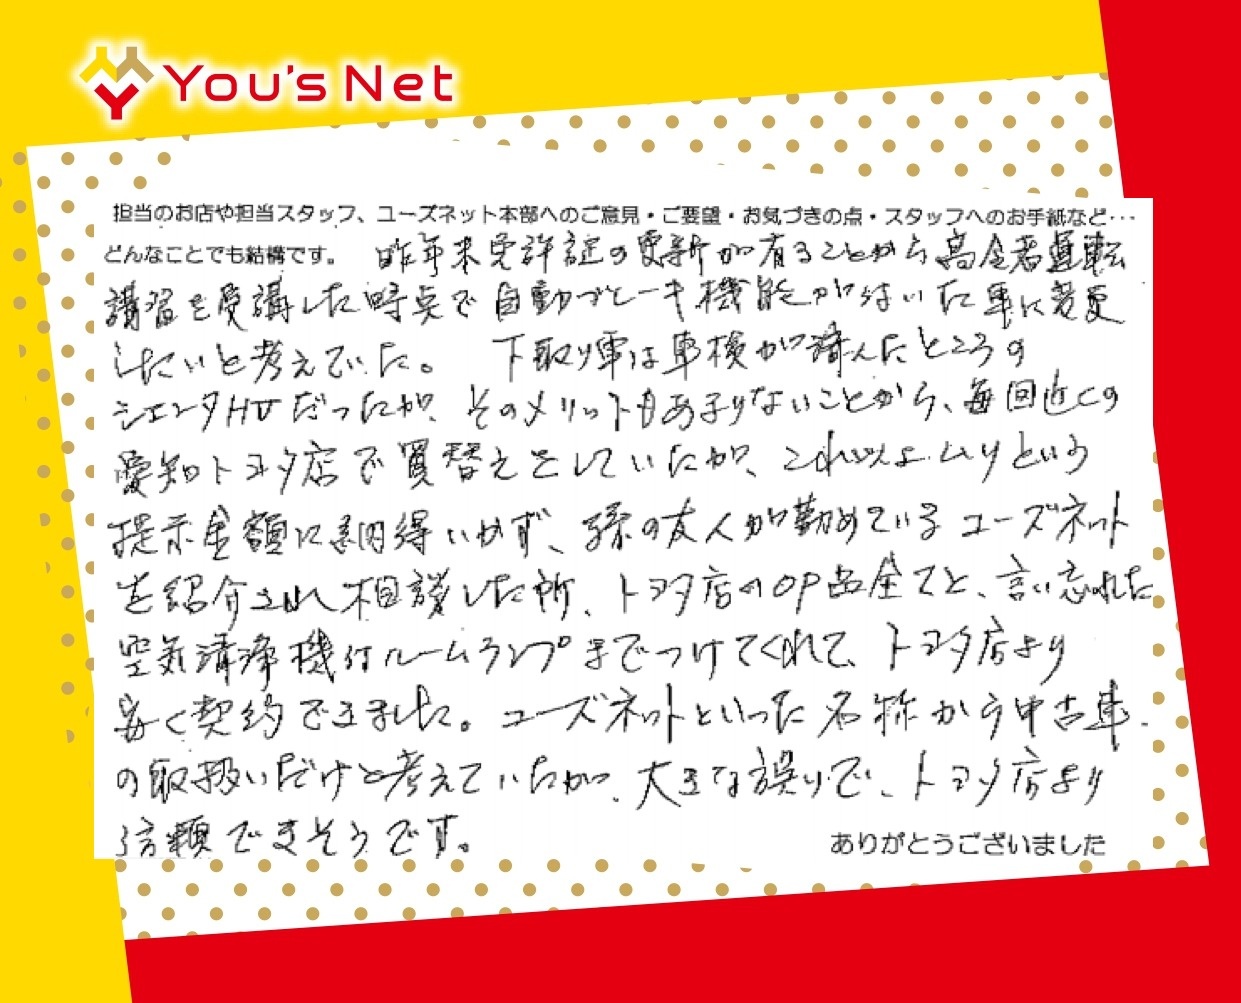 You's Net
担当のお店や担当スタッフ、ユーズネット本部へのご意見・ご要望・お気づきの点・スタッフへのお手紙など…
どんなことでも結構です。 昨年末免許証の更新が有ることから高令者運転
講習を受講した時点で自動ブレーキ機能がついた車に変更
したいと考えていた。 下取り車は車検が済んだところの
シエンタHVだったが、そのメリットもあまりないことから、毎回近くの
愛知トヨタ店で買替えをしていたが、これ以上ムリという
提示金額に納得いかず、孫の友人が勤めているユーズネット
を紹介され相談した所、トヨタ店のOP品全てと、言い忘れた
空気清浄機付ルームランプまでつけてくれて、トヨタ店より
安く契約できました。ユーズネットといった名称から中古車
の取扱いだけと考えていたが、大きな誤りで、トヨタ店より
信頼できそうです。
ありがとうございました